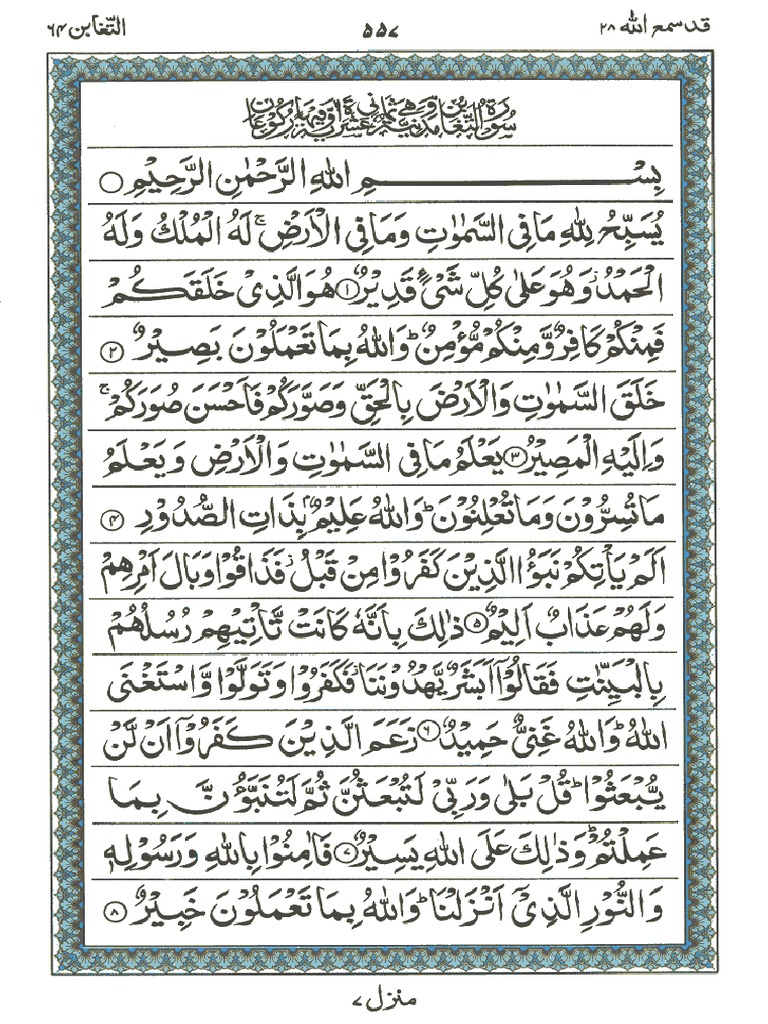 قد سمع الله ۲۸ ۵۵۷ التغابن ۶۴
سُوْرَةُ التَّغَابُنِ مَدَنِيَّةٌ وَّهِيَ ثَمَانِيَ عَشْرَةَ اٰيَةً وَّفِيْهَا رُكُوْعَانِ
بِسْـــــــــمِ اللّٰهِ الرَّحْمٰنِ الرَّحِيْمِ ○
يُسَبِّحُ لِلّٰهِ مَا فِي السَّمٰوٰتِ وَمَا فِي الْاَرْضِ ۚ لَهُ الْمُلْكُ وَلَهُ
الْحَمْدُ ۖ وَهُوَ عَلٰى كُلِّ شَيْءٍ قَدِيْرٌ ۱ هُوَ الَّذِيْ خَلَقَكُمْ
فَمِنْكُمْ كَافِرٌ وَّمِنْكُمْ مُّؤْمِنٌ ؕ وَاللّٰهُ بِمَا تَعْمَلُوْنَ بَصِيْرٌ ۲
خَلَقَ السَّمٰوٰتِ وَالْاَرْضَ بِالْحَقِّ وَصَوَّرَكُمْ فَاَحْسَنَ صُوَرَكُمْ ۚ
وَاِلَيْهِ الْمَصِيْرُ ۳ يَعْلَمُ مَا فِي السَّمٰوٰتِ وَالْاَرْضِ وَيَعْلَمُ
مَا تُسِرُّوْنَ وَمَا تُعْلِنُوْنَ ؕ وَاللّٰهُ عَلِيْمٌۢ بِذَاتِ الصُّدُوْرِ ۴
اَلَمْ يَاْتِكُمْ نَبَؤُا الَّذِيْنَ كَفَرُوْا مِنْ قَبْلُ ۖ فَذَاقُوْا وَبَالَ اَمْرِهِمْ
وَلَهُمْ عَذَابٌ اَلِيْمٌ ۵ ذٰلِكَ بِاَنَّهٗ كَانَتْ تَّاْتِيْهِمْ رُسُلُهُمْ
بِالْبَيِّنٰتِ فَقَالُوْٓا اَبَشَرٌ يَّهْدُوْنَنَا ۖ فَكَفَرُوْا وَتَوَلَّوْا وَّاسْتَغْنَى
اللّٰهُ ؕ وَاللّٰهُ غَنِيٌّ حَمِيْدٌ ۶ زَعَمَ الَّذِيْنَ كَفَرُوْٓا اَنْ لَّنْ
يُّبْعَثُوْا ؕ قُلْ بَلٰى وَرَبِّيْ لَتُبْعَثُنَّ ثُمَّ لَتُنَبَّؤُنَّ بِمَا
عَمِلْتُمْ ؕ وَذٰلِكَ عَلَى اللّٰهِ يَسِيْرٌ ۷ فَاٰمِنُوْا بِاللّٰهِ وَرَسُوْلِهٖ
وَالنُّوْرِ الَّذِيْٓ اَنْزَلْنَا ؕ وَاللّٰهُ بِمَا تَعْمَلُوْنَ خَبِيْرٌ ۸
منزل ۷